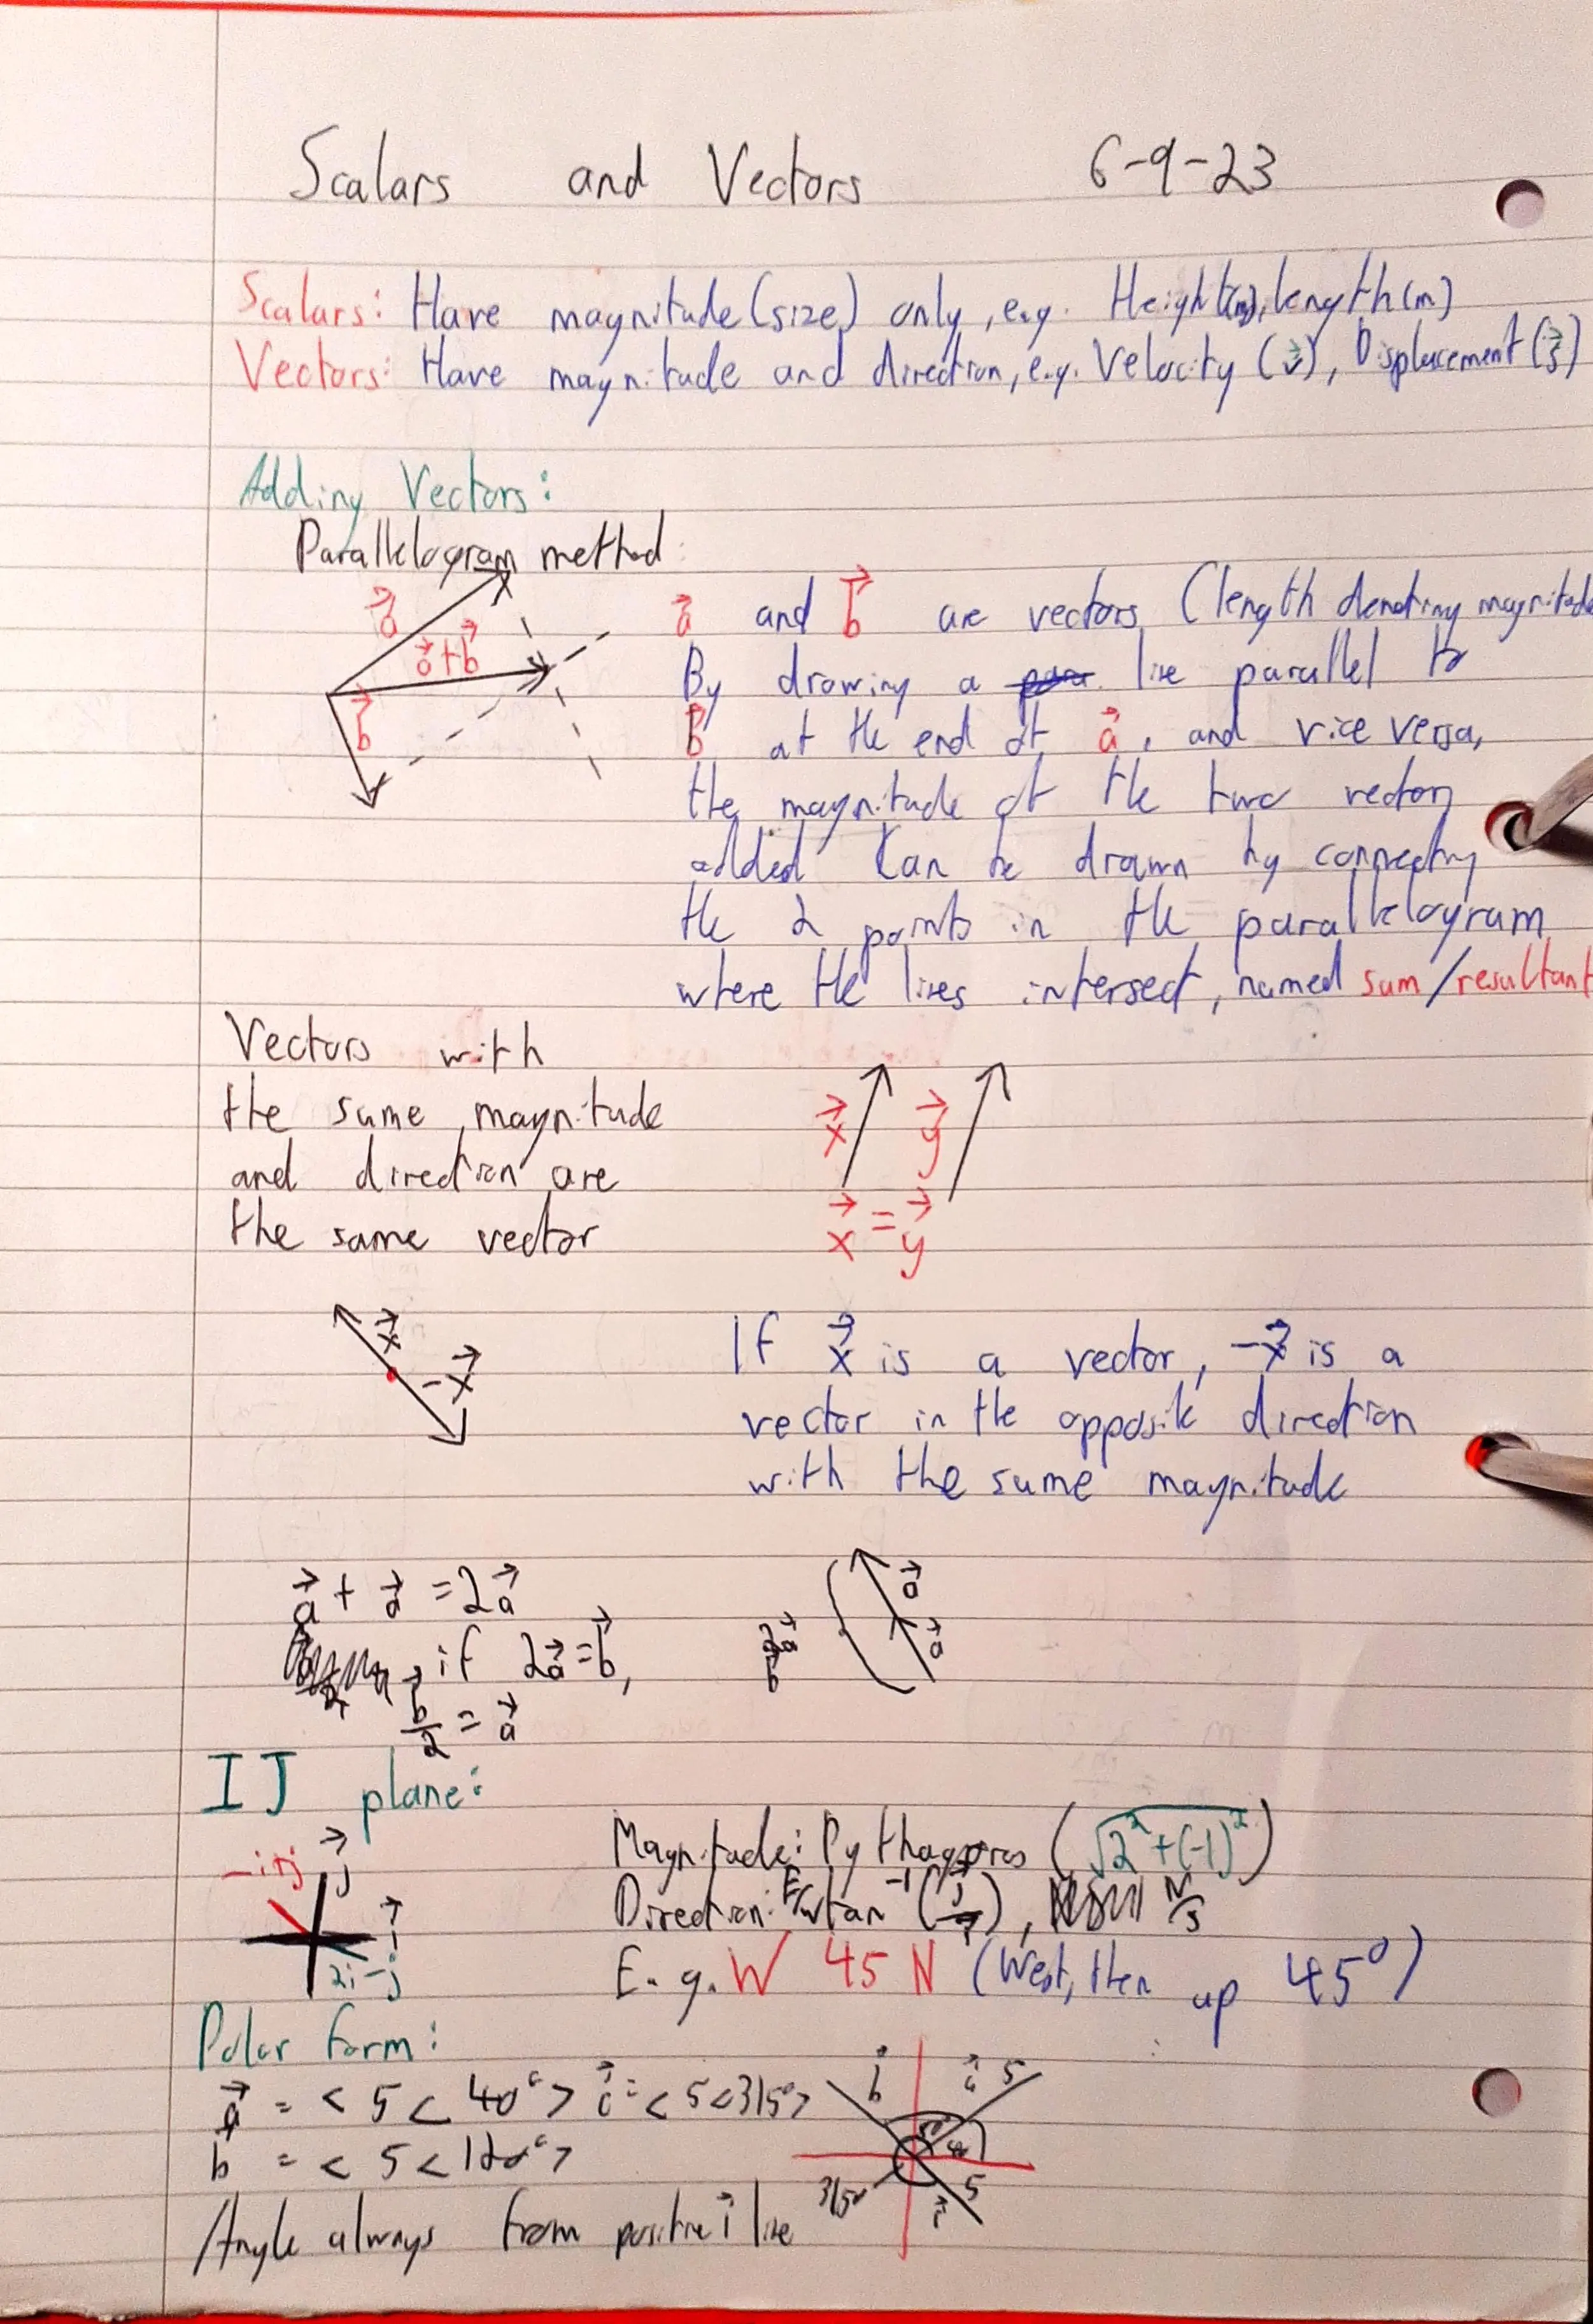 Scalars and Vectors 6-9-23
Scalars: Have magnitude (size) only, e.g. Height(m), length(m)
Vectors: Have magnitude and direction, e.g. Velocity (v⃗), Displacement (s⃗)
Adding Vectors:
Parallelogram method:
a⃗
a⃗+b⃗
b⃗
a⃗ and b⃗ are vectors (length denoting magnitude
By drawing a line parallel to
b⃗ at the end of a⃗, and vice versa,
the magnitude of the two vectors
added can be drawn by connecting
the 2 points in the parallelogram
where the lines intersect, named sum/resultant
Vectors with
the same magnitude
and direction are
the same vector
x⃗ y⃗
x⃗ = y⃗
x⃗
-x⃗
If x⃗ is a vector, -x⃗ is a
vector in the opposite direction
with the same magnitude
a⃗ + a⃗ = 2a⃗
if 2a⃗ = b⃗,
b⃗/2 = a⃗
a⃗
a⃗
2a⃗
b⃗
IJ plane:
-i+j
j⃗
i⃗
2i-j
Magnitude: Pythagoras (√2²+(-1)²)
Direction: E/W tan⁻¹ (j/i), N/S
E.g. W 45 N (West, then up 45°)
Polar form:
a⃗ = < 5 < 40° > c⃗ = < 5 < 315° >
b⃗ = < 5 < 120° >
Angle always from positive i⃗ line
b⃗
a⃗ 5
40
315°
5
c⃗